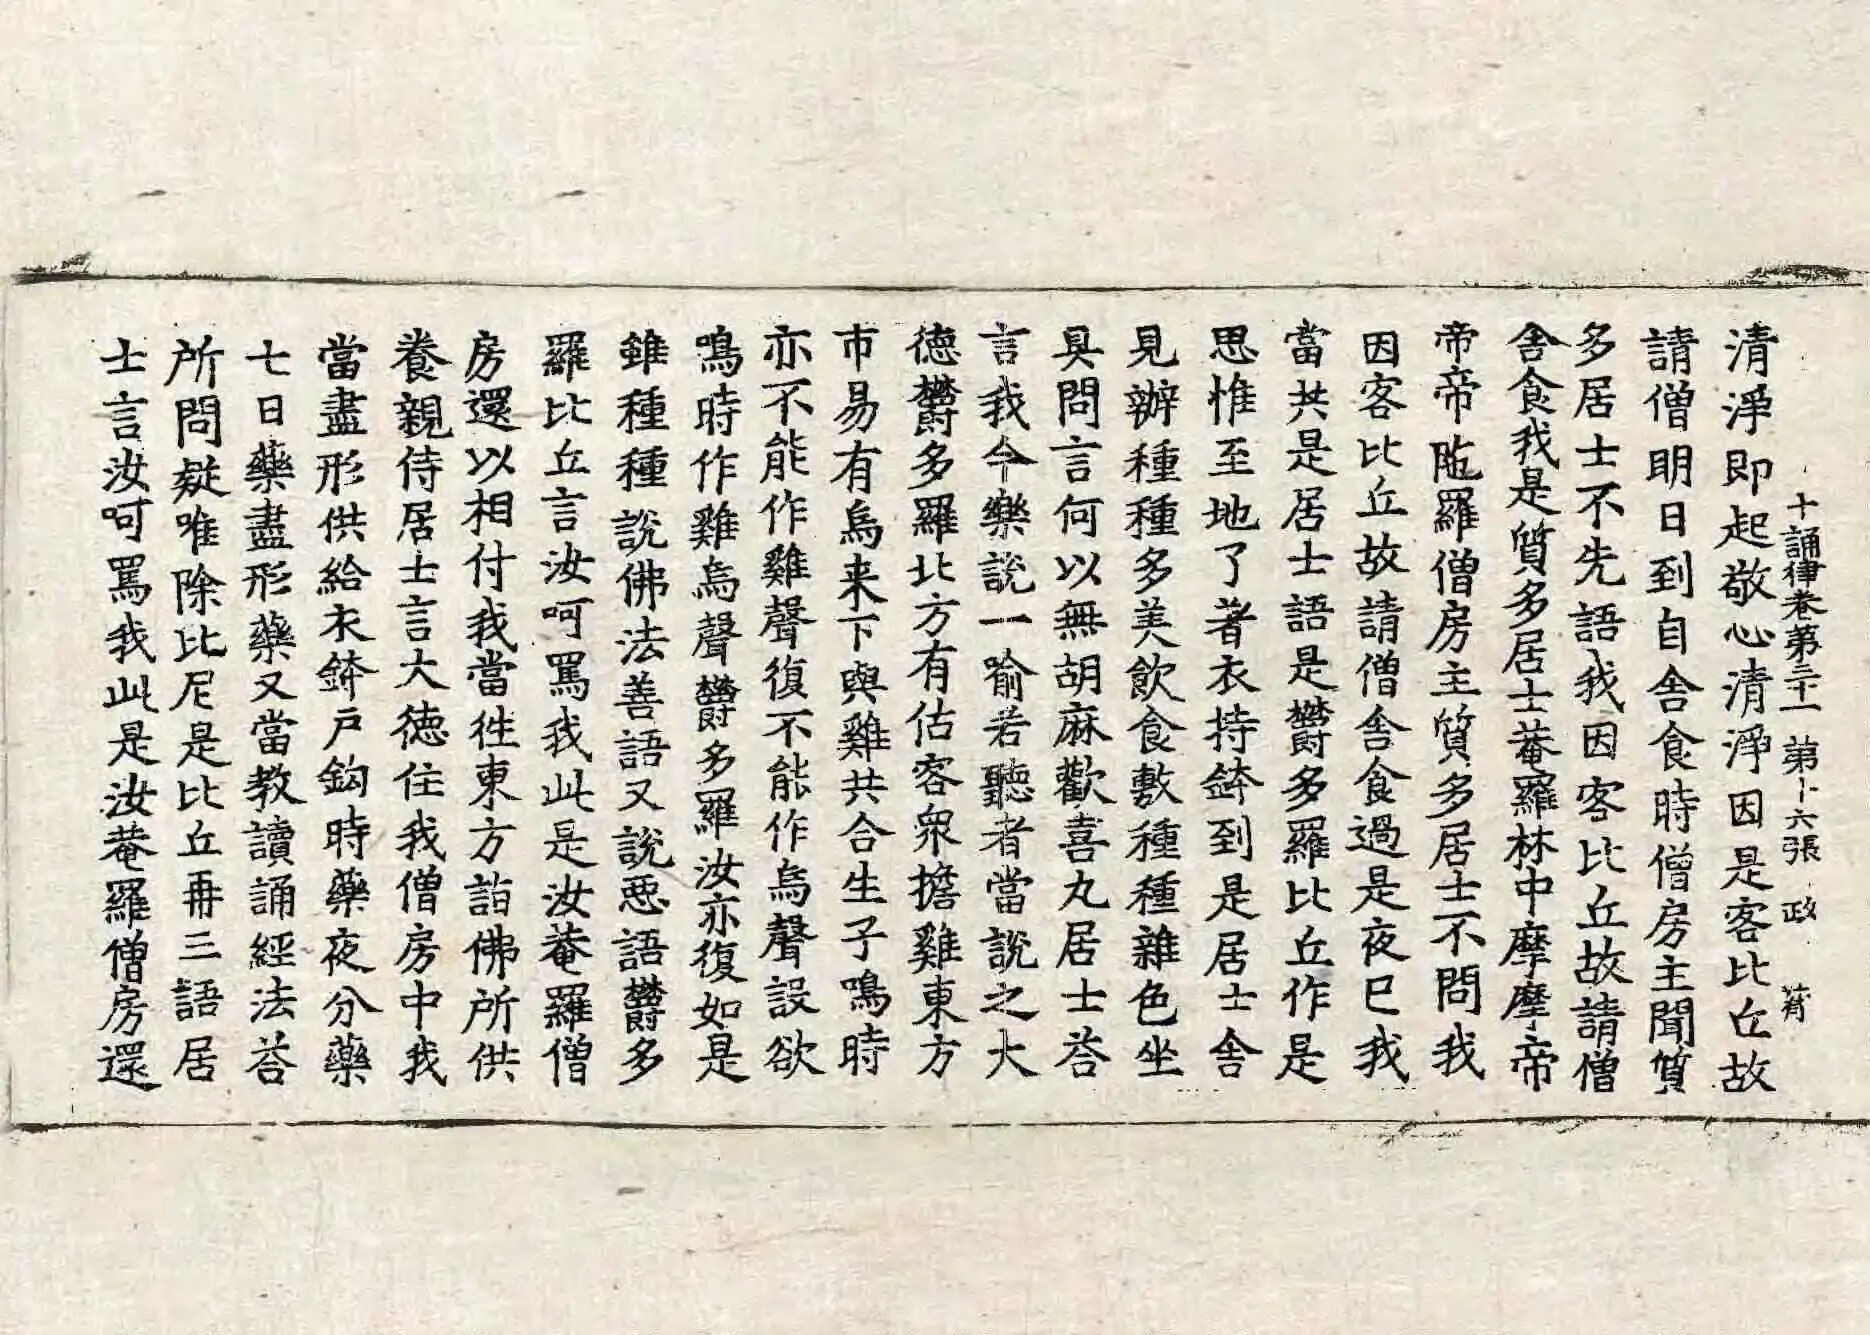 十誦律卷第三十一 第十六張 政
清淨即起敬心清淨因是客比丘故
請僧明日到自舍食時僧房主聞質
多居士不先語我因客比丘故請僧
舍食我是質多居士菴羅林中摩摩帝
帝帝陁羅僧房主質多居士不問我
因客比丘故請僧舍食過是夜巳我
當共是居士語是欝多羅比丘作是
思惟至地了著衣持鉢到是居士舍
見辦種種多美飲食敷種種雜色坐
具問言何以無胡麻歡喜丸居士荅
言我今樂說一喻若聽者當說之大
德欝多羅北方有估客衆擔雞東方
市易有烏来下與雞共合生子鳴時
亦不能作雞聲復不能作烏聲設欲
鳴時作雞烏聲欝多羅汝亦復如是
雖種種說佛法善語又說惡語欝多
羅比丘言汝呵罵我此是汝菴羅僧
房還以相付我當徃東方詣佛所供
養親侍居士言大德住我僧房中我
當盡形供給衣鉢戶鈎時藥夜分藥
七日藥盡形藥又當教讀誦經法荅
所問疑唯除比尼是比丘再三語居
士言汝呵罵我此是汝菴羅僧房還